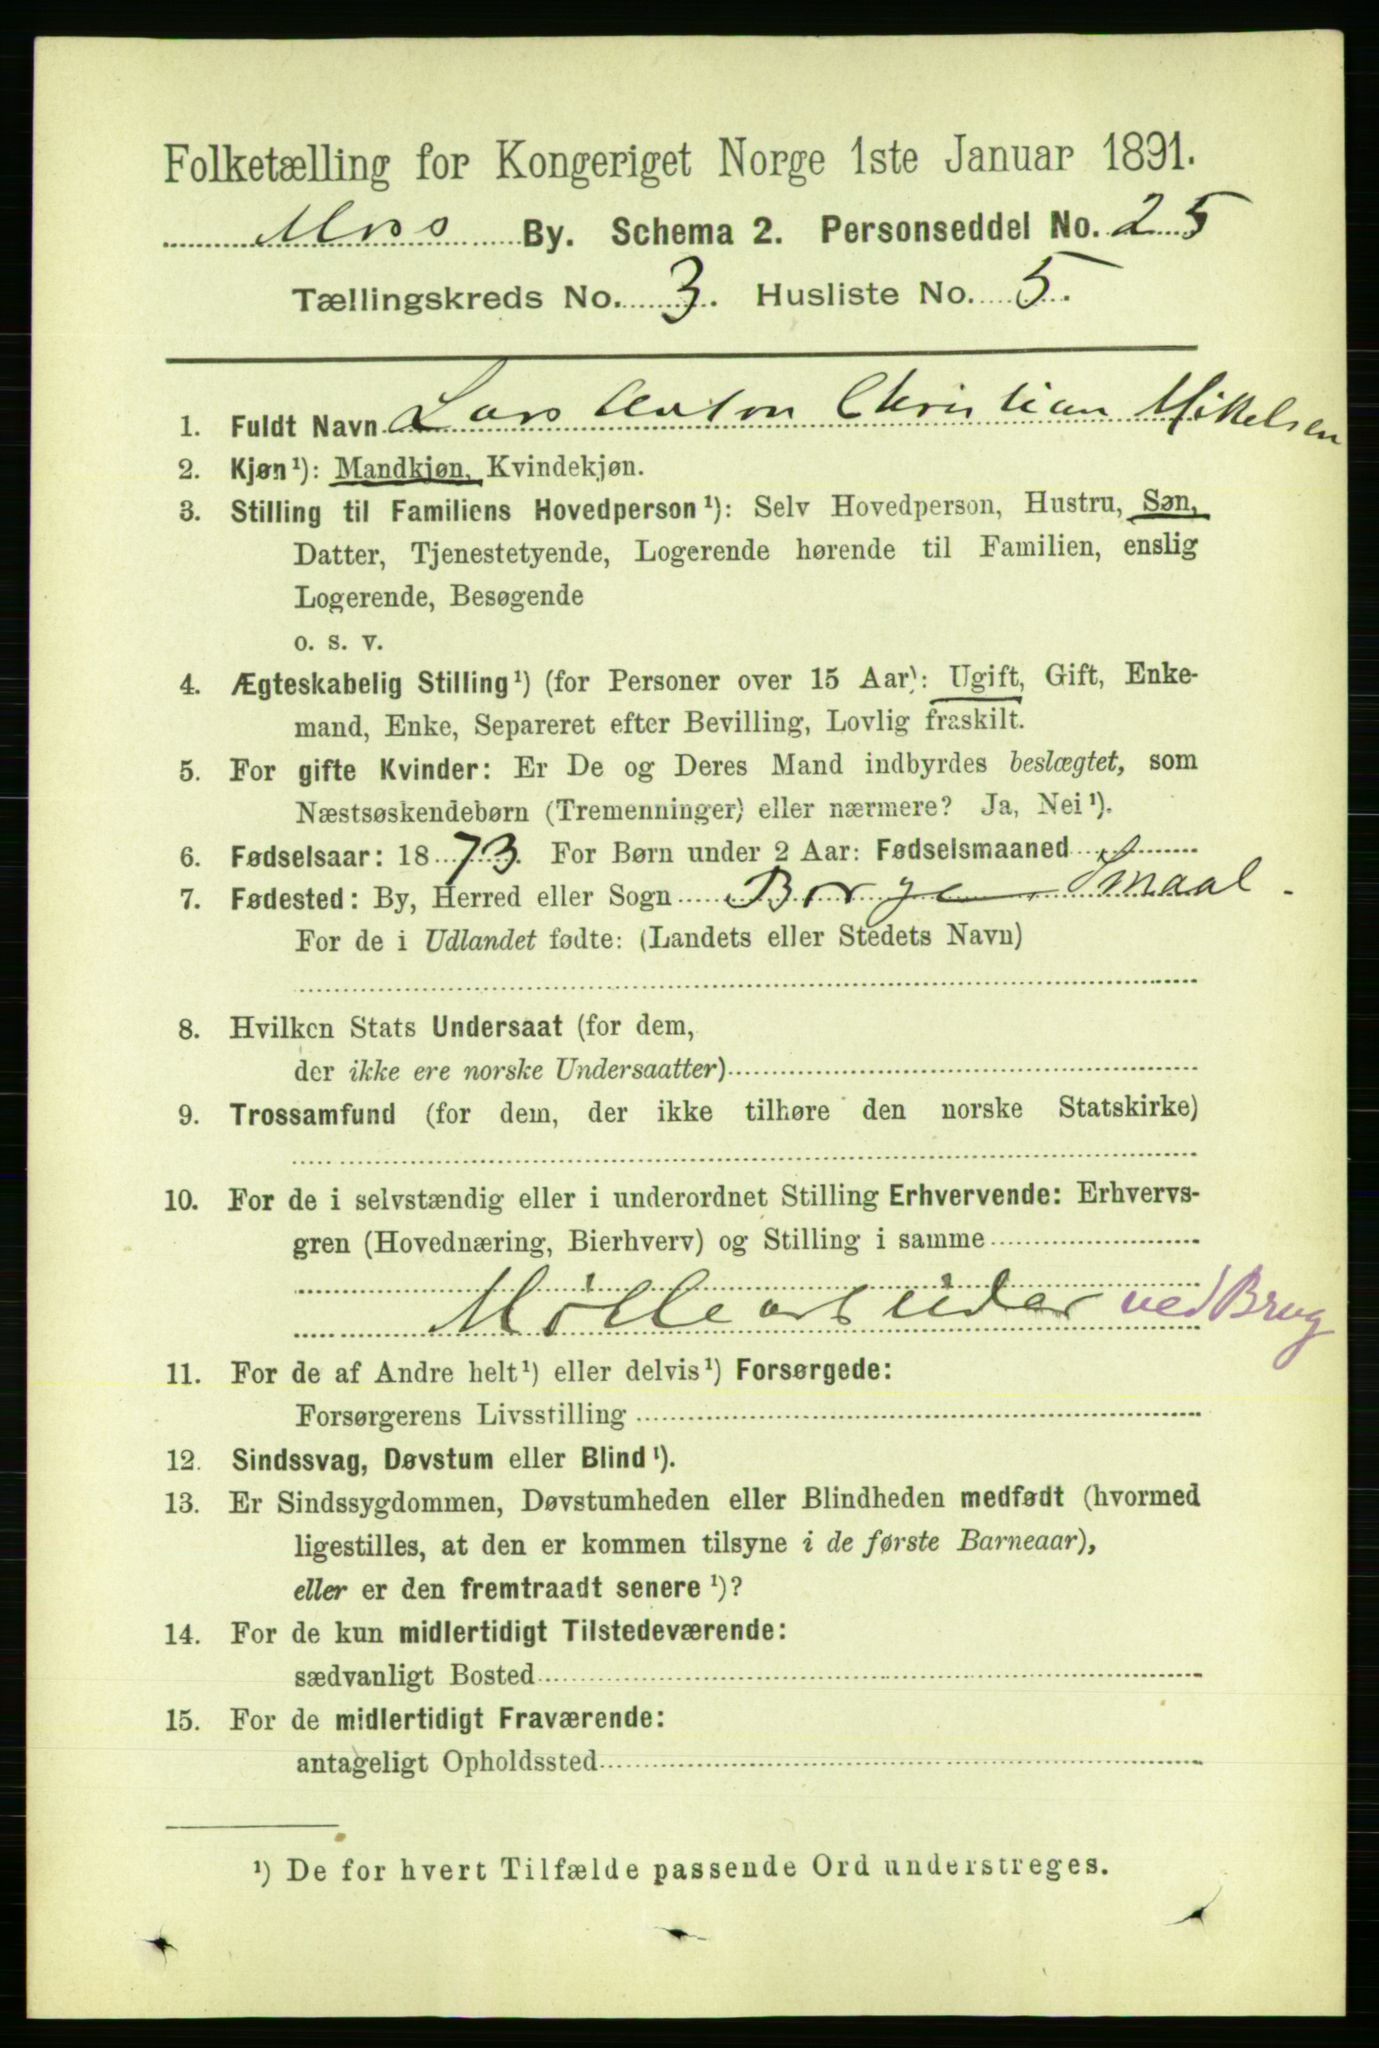 Folketælling for Kongeriget Norge 1ste Januar 1891.
Moss By. Schema 2. Personseddel No. 25
Tællingskreds No. 3. Husliste No. 5.
1. Fuldt Navn Lars Anton Christian Mikelsen
2. Kjøn¹): Mandkjøn, Kvindekjøn.
3. Stilling til Familiens Hovedperson¹): Selv Hovedperson, Hustru, Søn,
Datter, Tjenestetyende, Logerende hørende til Familien, enslig
Logerende, Besøgende
o. s. v.
4. Ægteskabelig Stilling¹) (for Personer over 15 Aar): Ugift, Gift, Enke-
mand, Enke, Separeret efter Bevilling, Lovlig fraskilt.
5. For gifte Kvinder: Er De og Deres Mand indbyrdes beslægtet, som
Næstsøskendebørn (Tremenninger) eller nærmere? Ja, Nei¹).
6. Fødselsaar: 1873. For Børn under 2 Aar: Fødselsmaaned
7. Fødested: By, Herred eller Sogn Borge Smaal.
For de i Udlandet fødte: (Landets eller Stedets Navn)
8. Hvilken Stats Undersaat (for dem,
der ikke ere norske Undersaatter)
9. Trossamfund (for dem, der ikke tilhøre den norske Statskirke)
10. For de i selvstændig eller i underordnet Stilling Erhvervende: Erhvervs-
gren (Hovednæring, Bierhverv) og Stilling i samme
Møllearbeider ved Brug
11. For de af Andre helt¹) eller delvis¹) Forsørgede:
Forsørgerens Livsstilling
12. Sindssvag, Døvstum eller Blind¹).
13. Er Sindssygdommen, Døvstumheden eller Blindheden medfødt (hvormed
ligestilles, at den er kommen tilsyne i de første Barneaar),
eller er den fremtraadt senere¹)?
14. For de kun midlertidigt Tilstedeværende:
sædvanligt Bosted
15. For de midlertidigt Fraværende:
antageligt Opholdssted
¹) De for hvert Tilfælde passende Ord understreges.